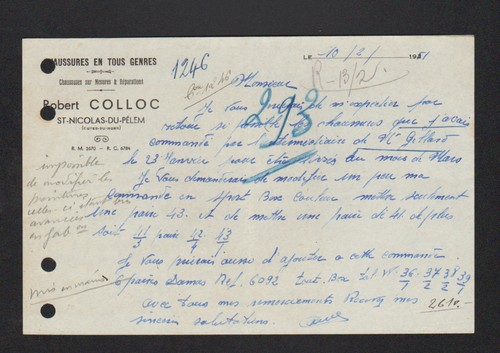 CHAUSSURES EN TOUS GENRES
Chaussures sur Mesures & Réparations
Robert COLLOC
ST-NICOLAS-DU-PÉLEM
(CÔTES-DU-NORD)
R. M. 2670 - R. C. 6784
1246
LE 10/2/ 1951
R-13/2/51
Monsieur
Je Vous de m'expédier par
retour si possible les chaussures que j'avais
commandé par l'intermédiaire de Mr Gillard
le 23 Janvier pour être livrées du mois de Mars
2/3
Je Vous demanderais de modifier un peu ma
commande en Sport Box Couleur, mettre seulement
1 une paire 43. et de mettre une paire de 41 de plus
soit 41/3 paires 42/4 43/1
Je Vous prierais aussi d'ajouter a cette commande
6 paires Dames Ref. 6092 tout Box tal N° 36/1 37/2 38/2 39/1
avec tous mes remerciements Recevez mes
sincères salutations.
2610.-
impossible
de modifier les
pointures
celles-ci étant
avancées
en fabon
mis en main